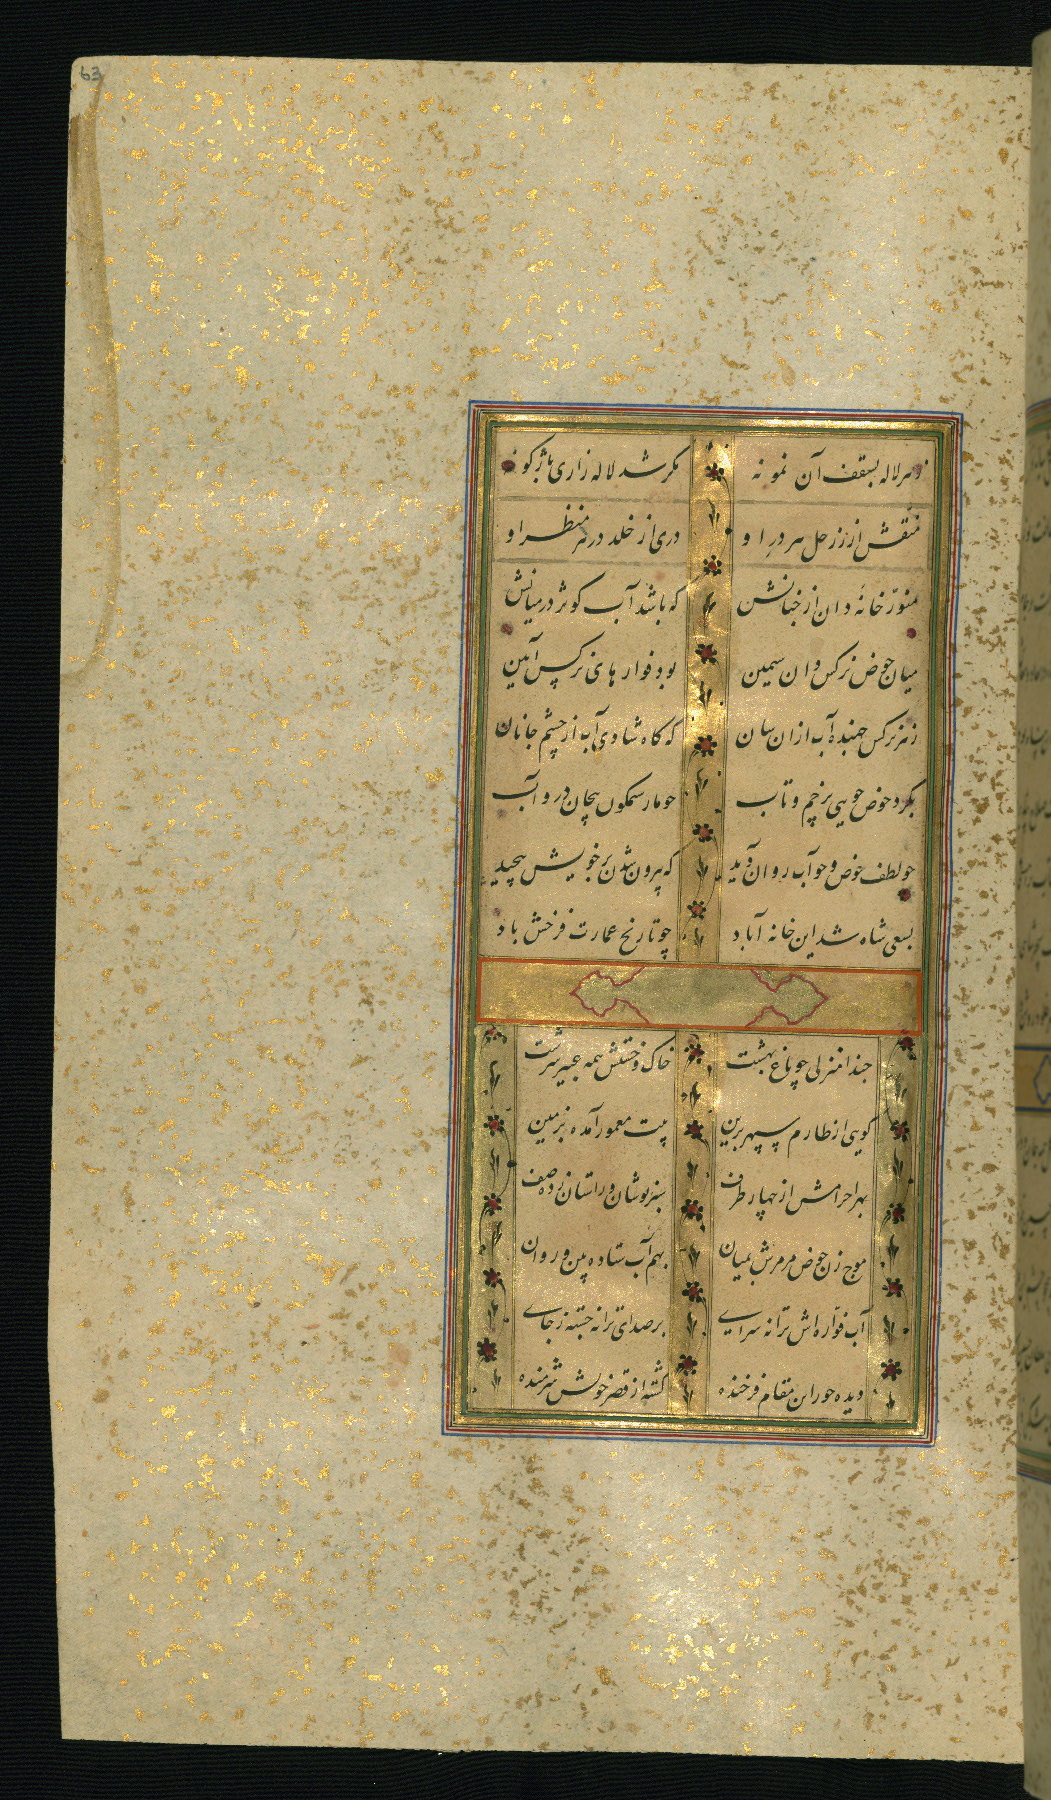 63
ز هر لاله بسقف آن نمونه مگر شد لاله زاری باژگونه
منقش از زر حل هر در او دری از خلد در هر منظر او
منور خانه دان از جنانش که باشد آب کوثر در میانش
میان حوض نرکس دان سیمین بود فواره‌ای نرکس آیین
ز نرکس جهنده آب ازان سان که گاه شادی آب از چشم جانان
بگرد حوض جویی پر خم و تاب چو مار سیمگون پیچان در و آب
چو لطف حوض و جو آب روان دید که بیرون شدن بر خویش پیچید
بسعی شاه شد این خانه آباد چو تاریخ عمارت فرخش باد
حبذا منزلی چو باغ بهشت خاک و خشتش همه عبیر سرشت
کویی از طارم سپهر برین بیت معمور آمده بزمین
بهر احرامش از چهار طرف سبز پوشان در استان زده صف
موج زن حوض مرمرش بمیان بهم آب ستاده بین و روان
آب فواره‌اش ترانه سرای بر صدای ترانه جسته ز جای
دیده حور این مقام فرخنده گشته از قصر خویش شرمنده